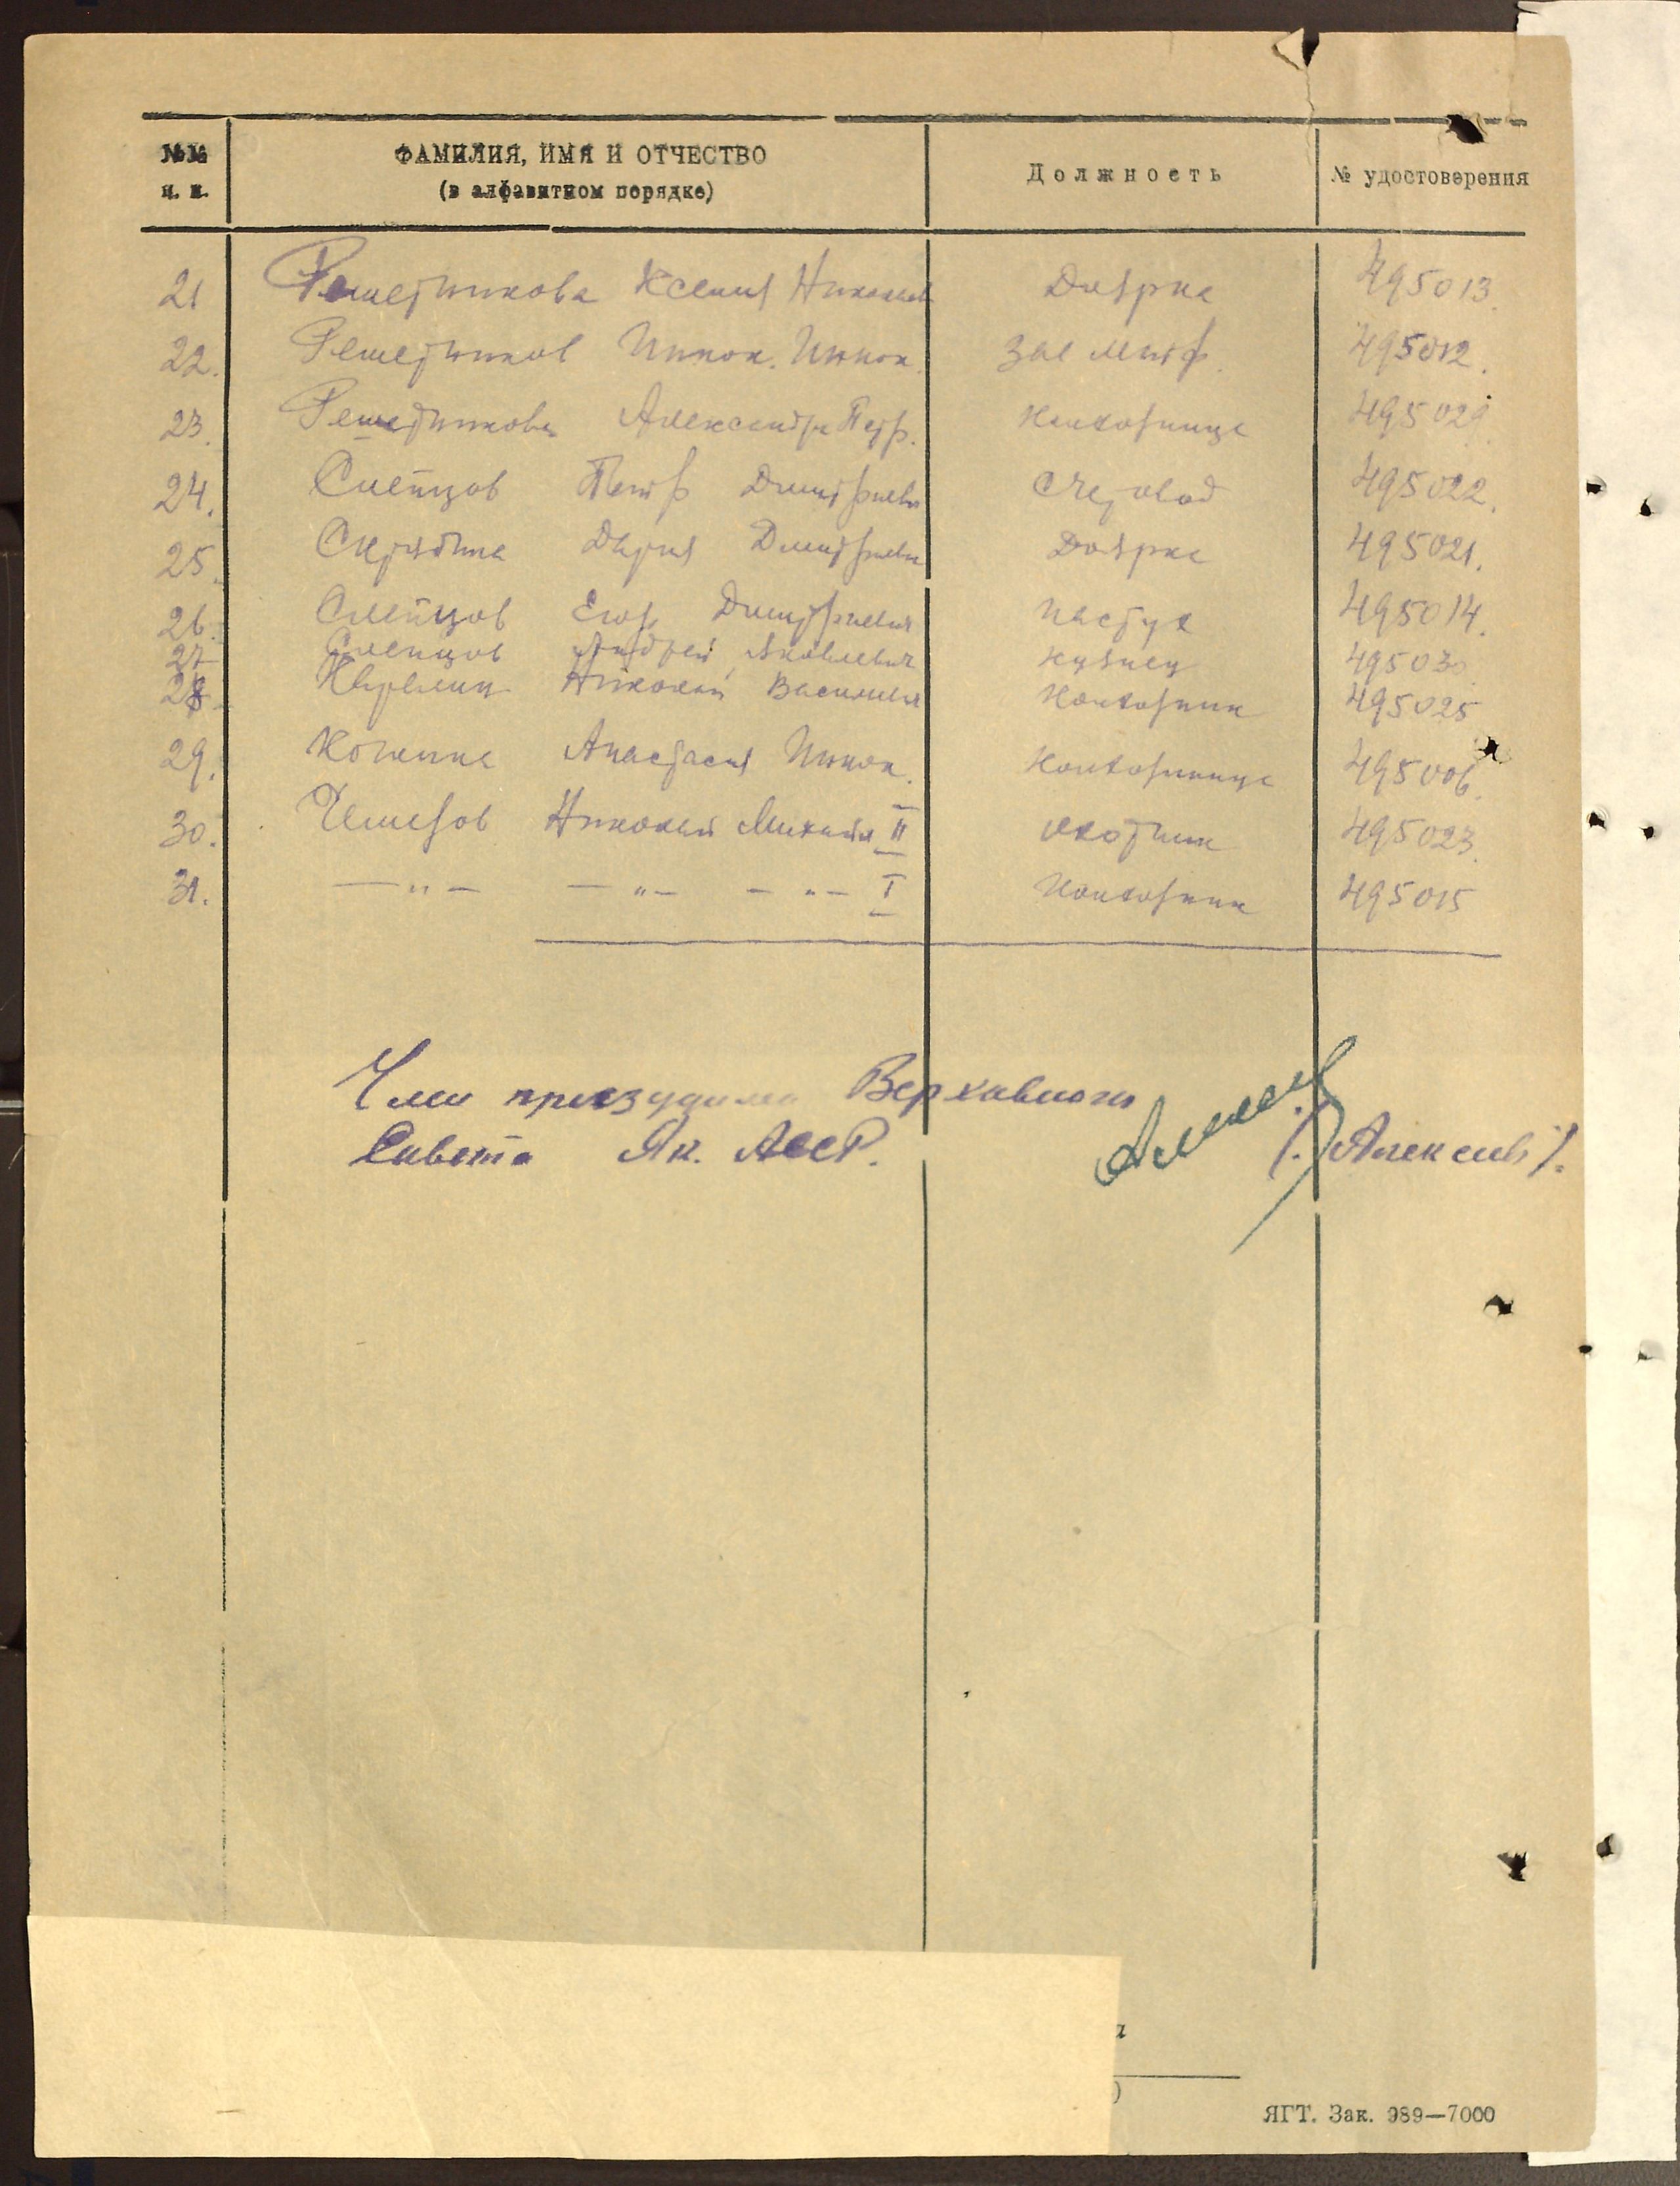 №№ ФАМИЛИЯ, ИМЯ И ОТЧЕСТВО Должность № удостоверения
п. п. (в алфавитном порядке)
21 Решетникова Ксения Николаев Доярка 495013
22. Решетников Иннок. Иннок. 495012.
23. Решетникова Александра Петр. Колхозница 495029.
24. Слепцов Петр Дмитриевич Счетовод 495022.
25. Скрябина Дария Дмитриевн Доярка 495021.
26. Слепцов Егор Дмитриевич Пастух 495014.
27 Слепцов Андрей Яковлевич Кузнец 495030
28. Николай Васильевич Колхозник 495025
29. Анастасия Иннок. Колхозница 495006.
30. Чемезов Николай Михайл II Охотник 495023.
31. —"— —"— —"— I Колхозник 495015
Член презудима Верховного
Совета Як. АССР. /. Алексеев /.
а
)
ЯГТ. Зак. 989—7000